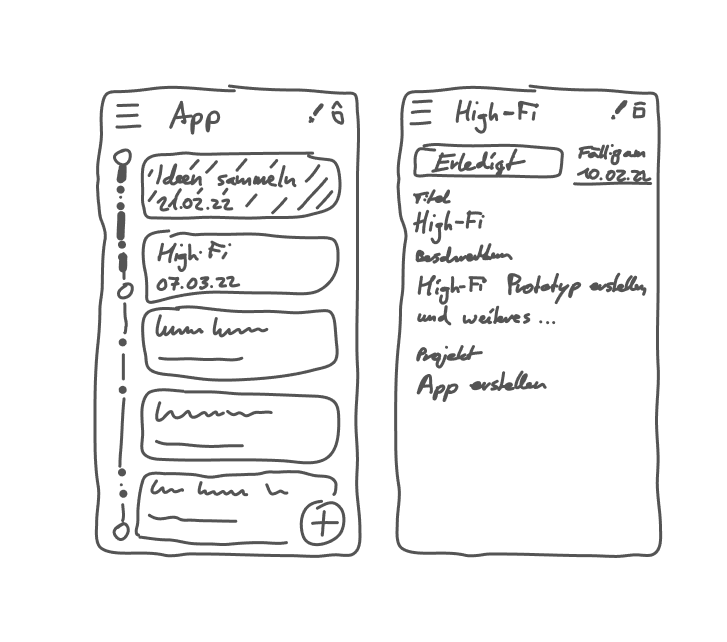 App
Ideen sammeln
21.02.22
High-Fi
07.03.22
High-Fi
Erledigt
Fällig am
10.02.22
Titel
High-Fi
High-Fi Prototyp erstellen
und weiteres ...
Projekt
App erstellen